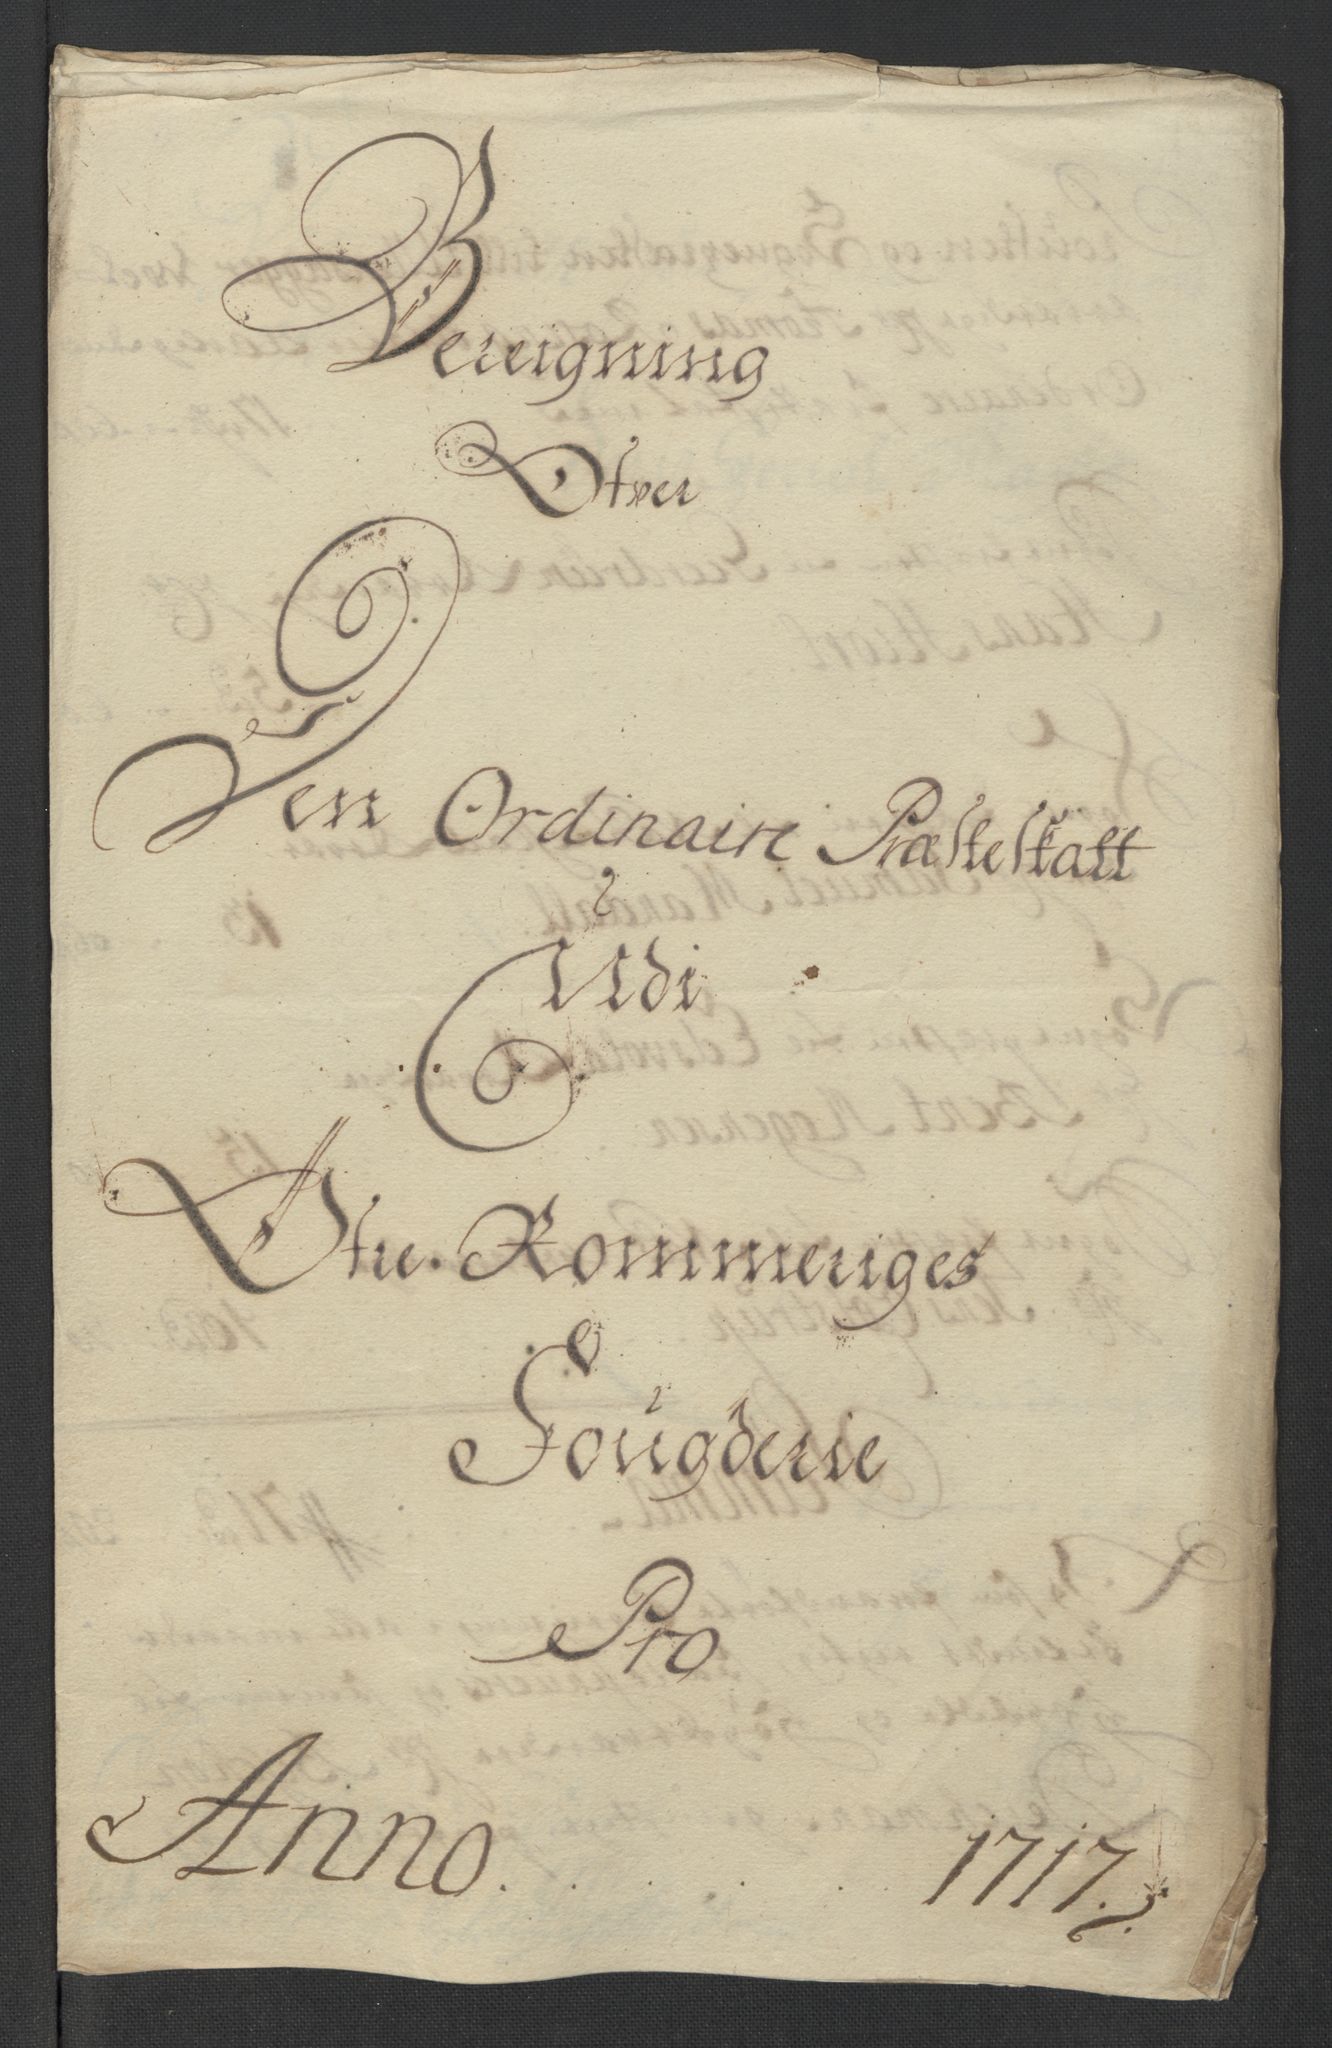 Bereigning
Ofver
Den Ordinaire Præsteskatt
Udi
Ofre Rommeriges
Fougderie
Pro
Anno . . . . . . 1717.